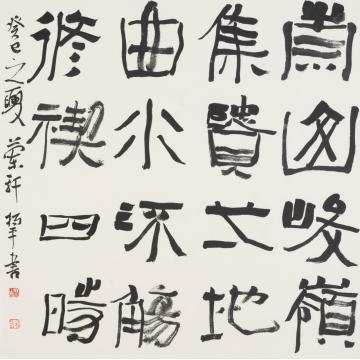 崇山峻嶺
集賢之地
曲水流觴
修禊四時
癸巳之夏蘭軒振平書